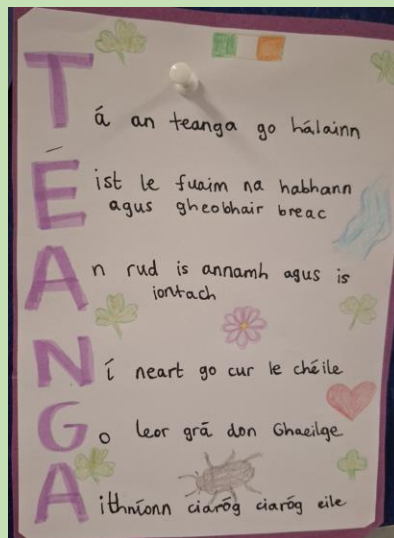 Tá an teanga go hálainn
Éist le fuaim na habhann
agus gheobhair breac
An rud is annamh agus is
iontach
Ní neart go cur le chéile
Go leor grá don Ghaeilge
Aithníonn ciaróg ciaróg eile